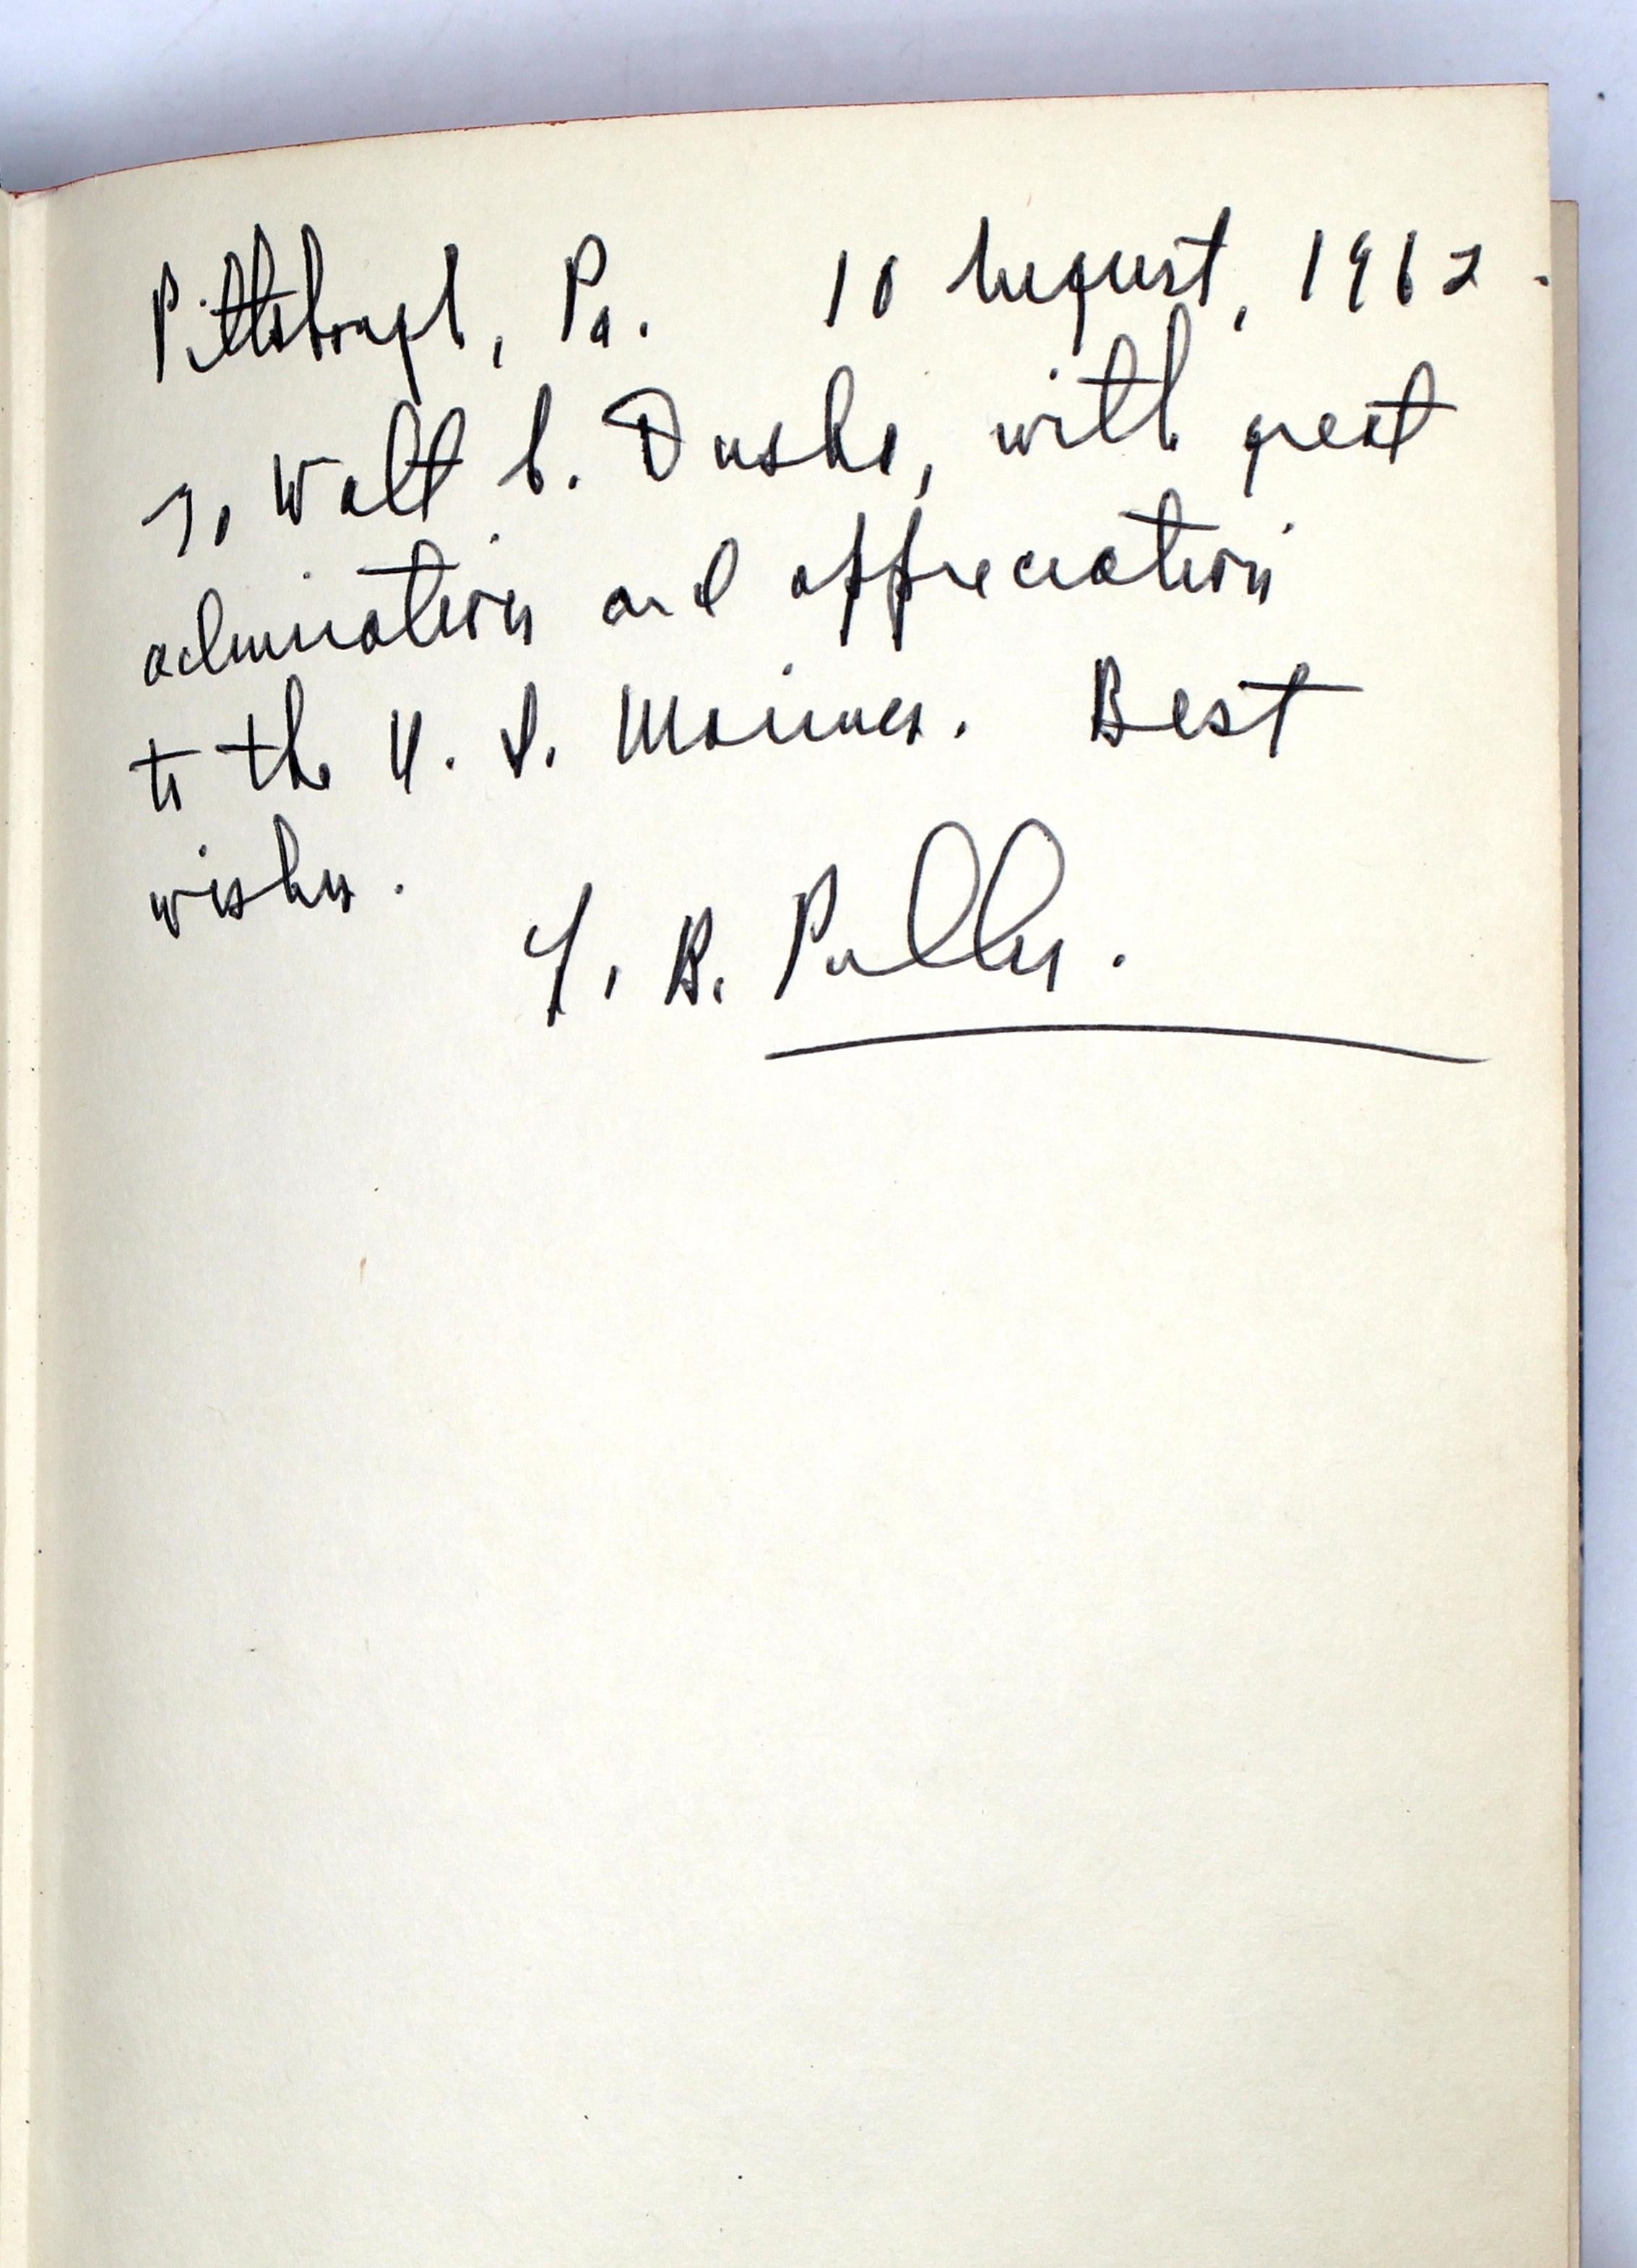 Pittsburgh, Pa. 10 August, 1962.
To Walt C. Dusho, with great
admiration and appreciation
to the U. S. Marines. Best
wishes.
L. B. Puller.